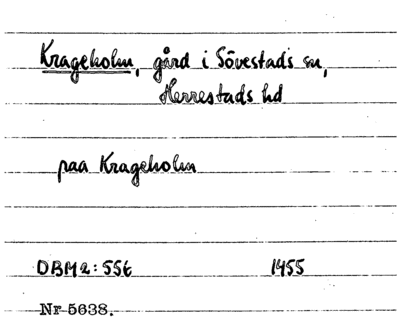 Krageholm, gård i Sövestads sn,
Herrestads hd
paa Krageholm
DBM2:556 1455
Nr 5638.